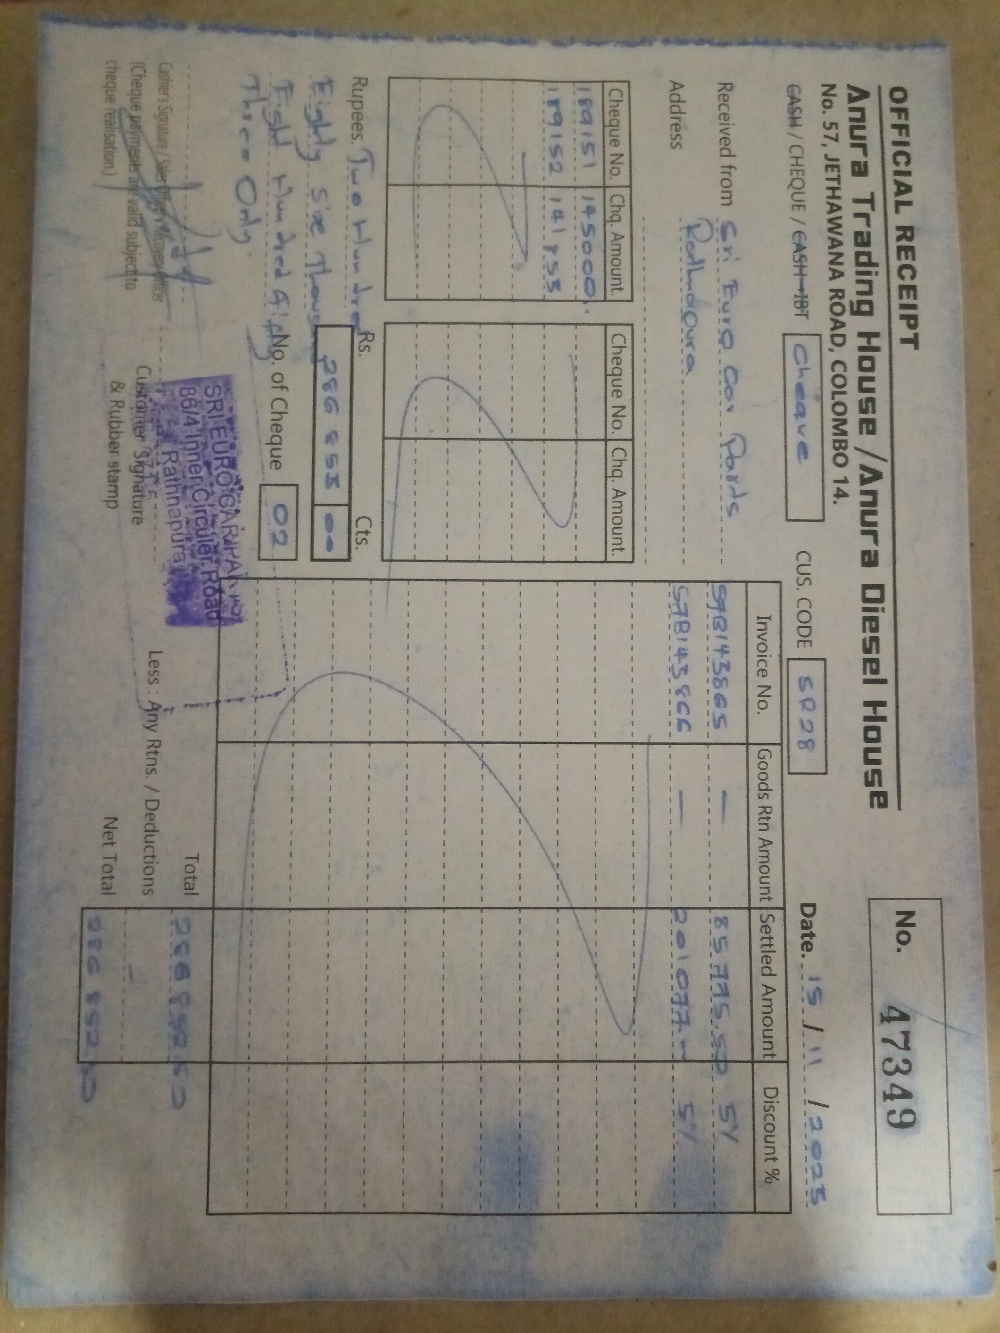 OFFICIAL RECEIPT
Anura Trading House / Anura Diesel House
No. 57, JETHAWANA ROAD, COLOMBO 14.
No. 47349
CASH / CHEQUE / CASH → IBT Cheque
CUS. CODE SR28
Date. 15 / 11 / 2023
Received from Sri Euro Car Parts
Address Rathnapura
Cheque No. Chq. Amount
189151 145000.
189152 141853
Cheque No. Chq. Amount.
Invoice No. Goods Rtn Amount Settled Amount Discount %
STB143865 — 85775.50 5%
STB143866 — 201077.00 5%
Rs. Cts.
286 853 00
Rupees. Two Hundred
Eighty Six Thous
Eight Hundred Fifty
Three Only.
No. of Cheque 02
SRI EURO CAR PARTS
86/4 Inner Circuler Road
Rathnapura
Customer Signature
& Rubber stamp
(Cheque payments are valid subject to
cheque realisation.)
Total 286 852.50
Less : Any Rtns. / Deductions —
Net Total 286 852.50